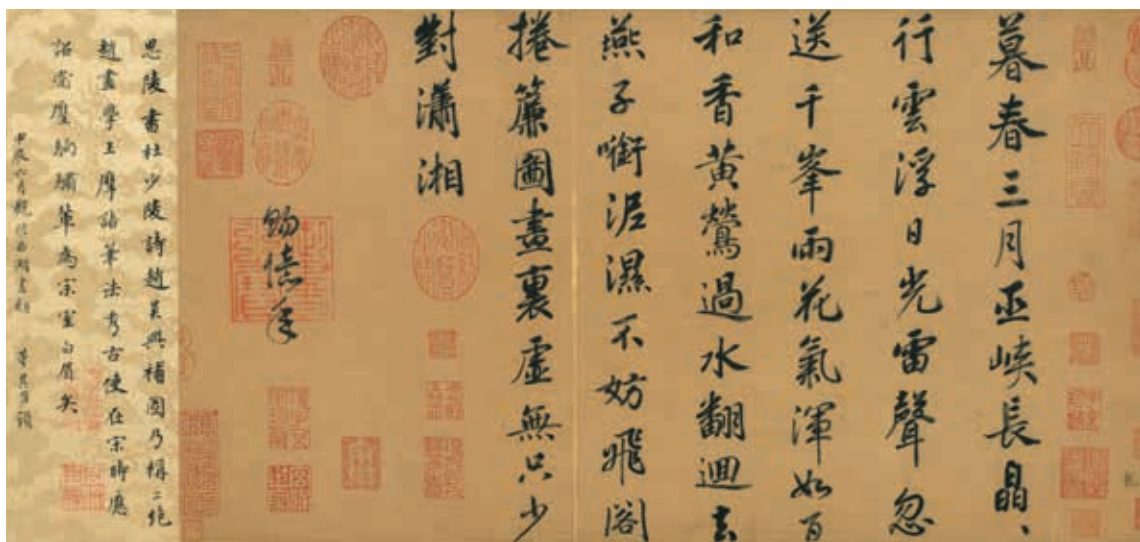 暮春三月巫峽長皛、
行雲浮日光雷聲忽
送千峯雨花氣渾如百
和香黃鶯過水翻迴去
燕子啣泥濕不妨飛閣
捲簾圖畫裏虛無只少
對瀟湘
賜億年
思陵書杜少陵詩趙吳興補圖乃稱二絕
趙畫學王摩詰筆法考古使在宗時應
詔當壓驌輩為宗室白眉矣
甲辰六月觀於西湖畫舫 董其昌題